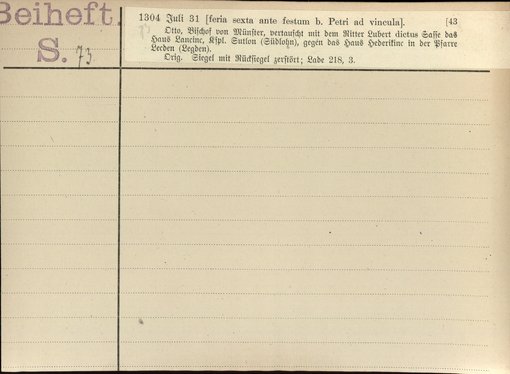 Beiheft.
S. 73
1304 Juli 31 [feria sexta ante festum b. Petri ad vincula]. [43
Otto, Bischof von Münster, vertauscht mit dem Ritter Lubert dictus Sasse das
Haus Lancinc, Kspl. Sutlon (Südlohn), gegen das Haus Hederikinc in der Pfarre
Lecden (Legden).
Orig. Siegel mit Rücksiegel zerstört; Lade 218, 3.